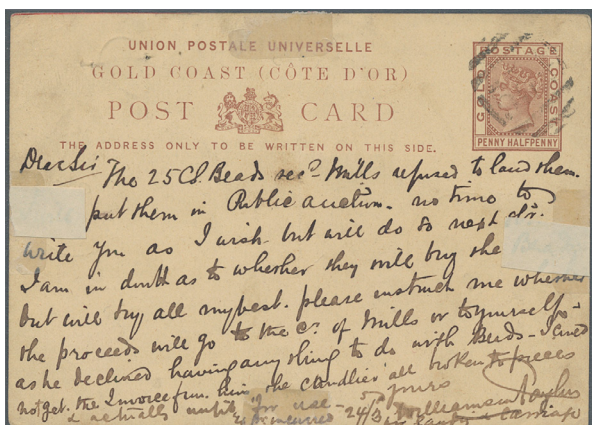 UNION POSTALE UNIVERSELLE
GOLD COAST (CÔTE D'OR)
POST CARD
THE ADDRESS ONLY TO BE WRITTEN ON THIS SIDE.
POSTAGE
GOLD COAST
PENNY HALFPENNY
Dear Sir The 25 Cs. Beads recd. Mills refused to land them.
put them in Public auction. no time to
write you as I wish but will do so next
I am in doubt as to whether they will buy the
but will try all my best. please instruct me whether
the proceeds will go to the of Mills or to yourself
as he declined having anything to do with Beads - I cined
not get the Invoice from him the candles all broken to pieces
& actually unfit for use - yours
24/5 Williamson